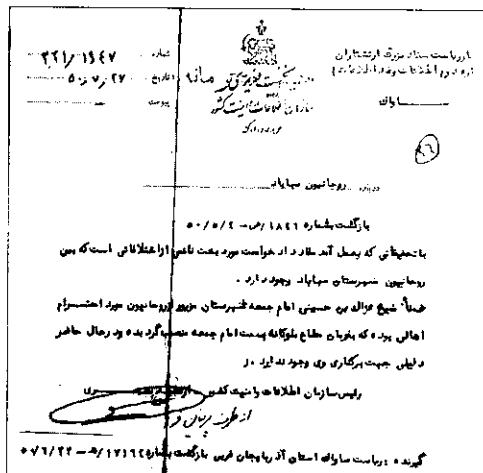 شماره ۳۲۱/۱۶۴۷
بریاست ستاد بزرگ ارتشتاران
تاریخ ۵۰/۷/۲۷
(اداره دوم اطلاعات و ضد اطلاعات)
پیوست
نخست وزیری
سازمان اطلاعات و امنیت کشور
ساواک
درباره روحانیون مهاباد
بازگشت بشماره ۱۸۴۶/ - ۵۰/۵/۴
با تحقیقاتی که بعمل آمد مفاد درخواست مورد بحث ناشی از اختلافاتی است که بین
روحانیون شهرستان مهاباد وجود دارد .
ضمناً شیخ عزالدین حسینی امام جمعه شهرستان مزبور از روحانیون مورد احترام
اهالی بوده که بفرمان مطاع ملوکانه بسمت امام جمعه منصوب گردیده و در حال حاضر
دلیلی جهت برکناری وی وجود ندارد .
رئیس سازمان اطلاعات و امنیت کشور
از طرف
گیرنده : ریاست ساواک استان آذربایجان غربی بازگشت بشماره